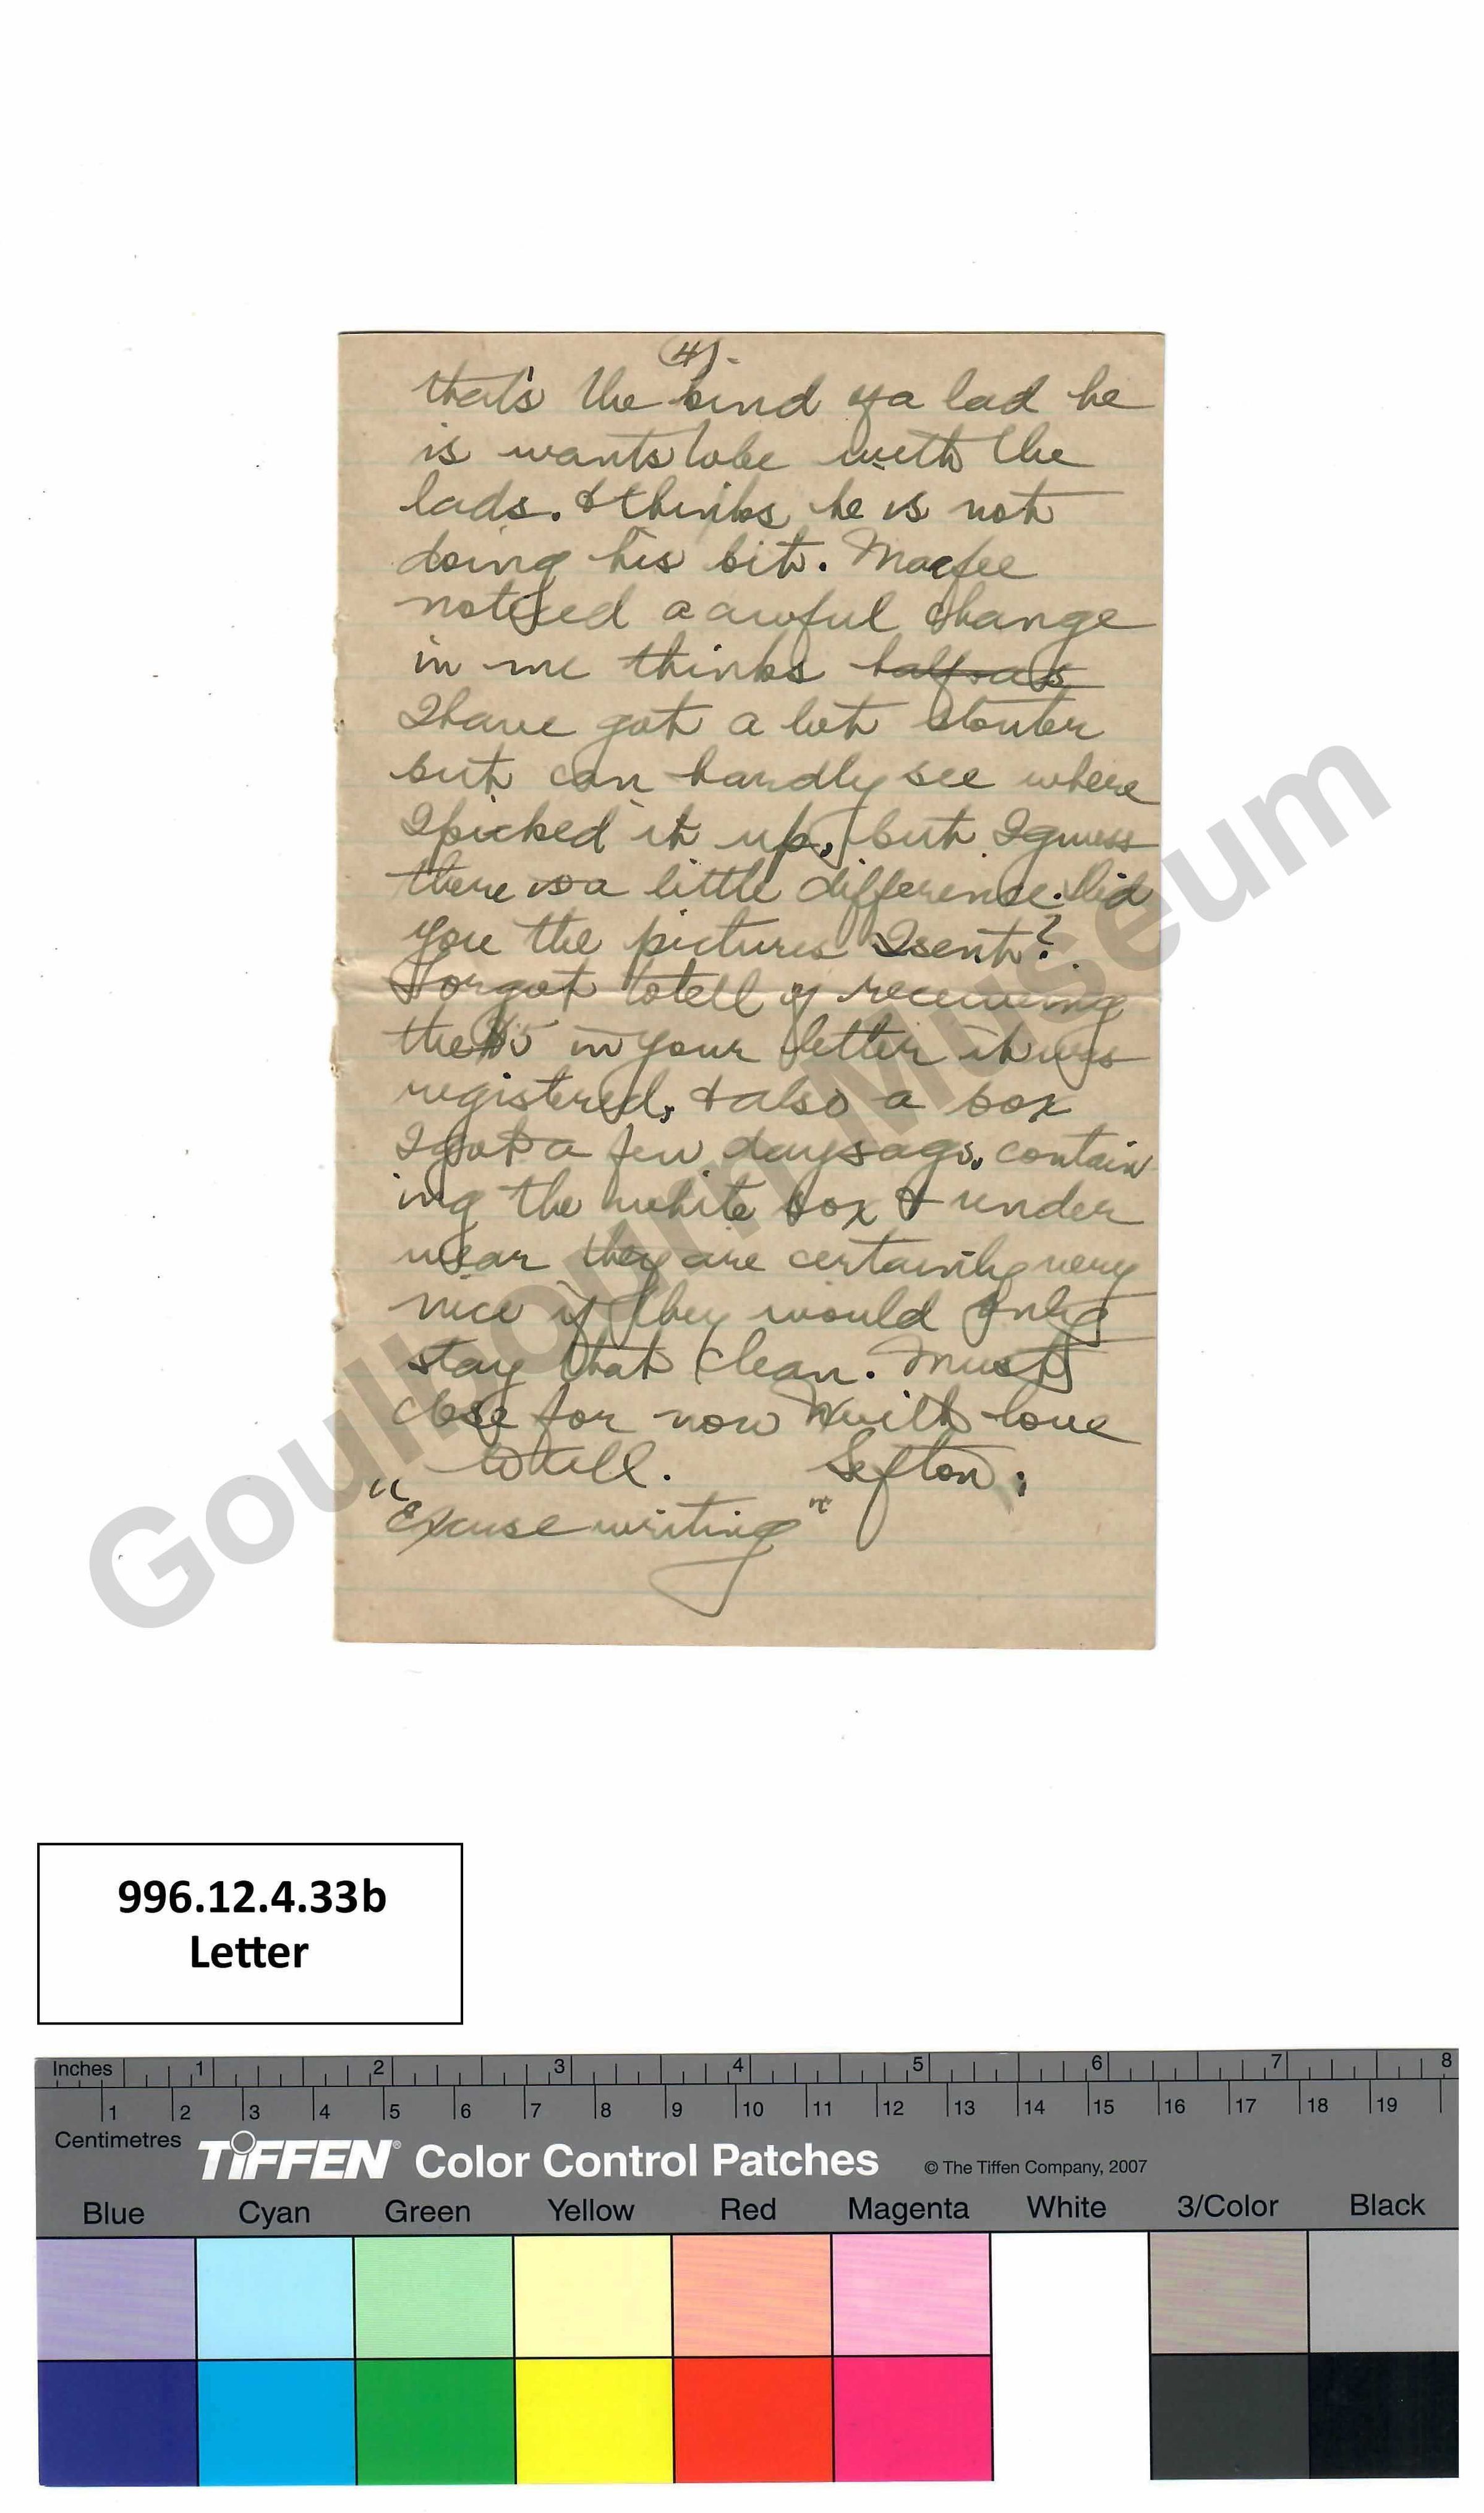 (4).
that's the kind of a lad he
is wants to be with the
lads. & thinks he is not
doing his bit. Macfee
noticed a awful change
in me thinks half as
I have got a lot stouter
but can hardly see where
I picked it up, but I guess
there is a little difference. Did
you the pictures I sent?
Forgot to tell of receiving
the $5 in your letter it was
registered, & also a box
I got a few days ago, contain
ing the white sox & under
wear they are certainly very
nice if they would only
stay that clean. Must
close for now with love
to all. Sefton.
"Excuse writing"
Goulbourn Museum
996.12.4.33b
Letter
Inches 1 2 3 4 5 6 7 8
1 2 3 4 5 6 7 8 9 10 11 12 13 14 15 16 17 18 19
Centimetres
TIFFEN® Color Control Patches © The Tiffen Company, 2007
Blue Cyan Green Yellow Red Magenta White 3/Color Black